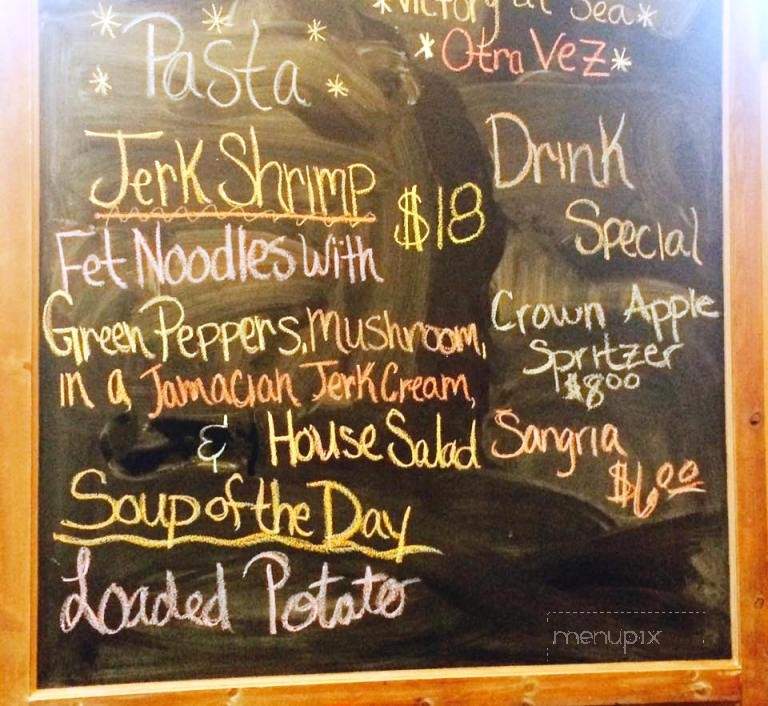 *Victory at Sea*
*Otra Vez*
Pasta
Jerk Shrimp
$18
Fet Noodles with
Green Peppers, Mushroom,
in a Jamacian Jerk Cream,
& House Salad
Soup of the Day
Loaded Potato
Drink
Special
Crown Apple
Spritzer
$800
Sangria
$600
menupix